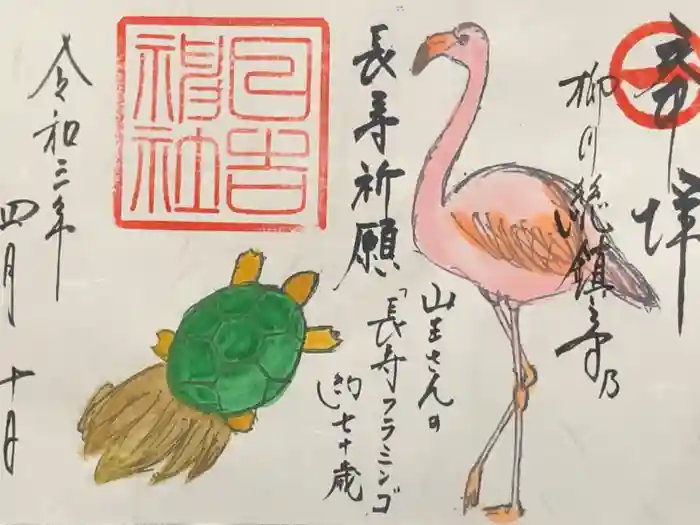 奉拝
柳川総鎮守乃
長寿祈願
山王さんの
「長寿フラミンゴ」
約七十歳
日吉神社
令和三年
四月 十日